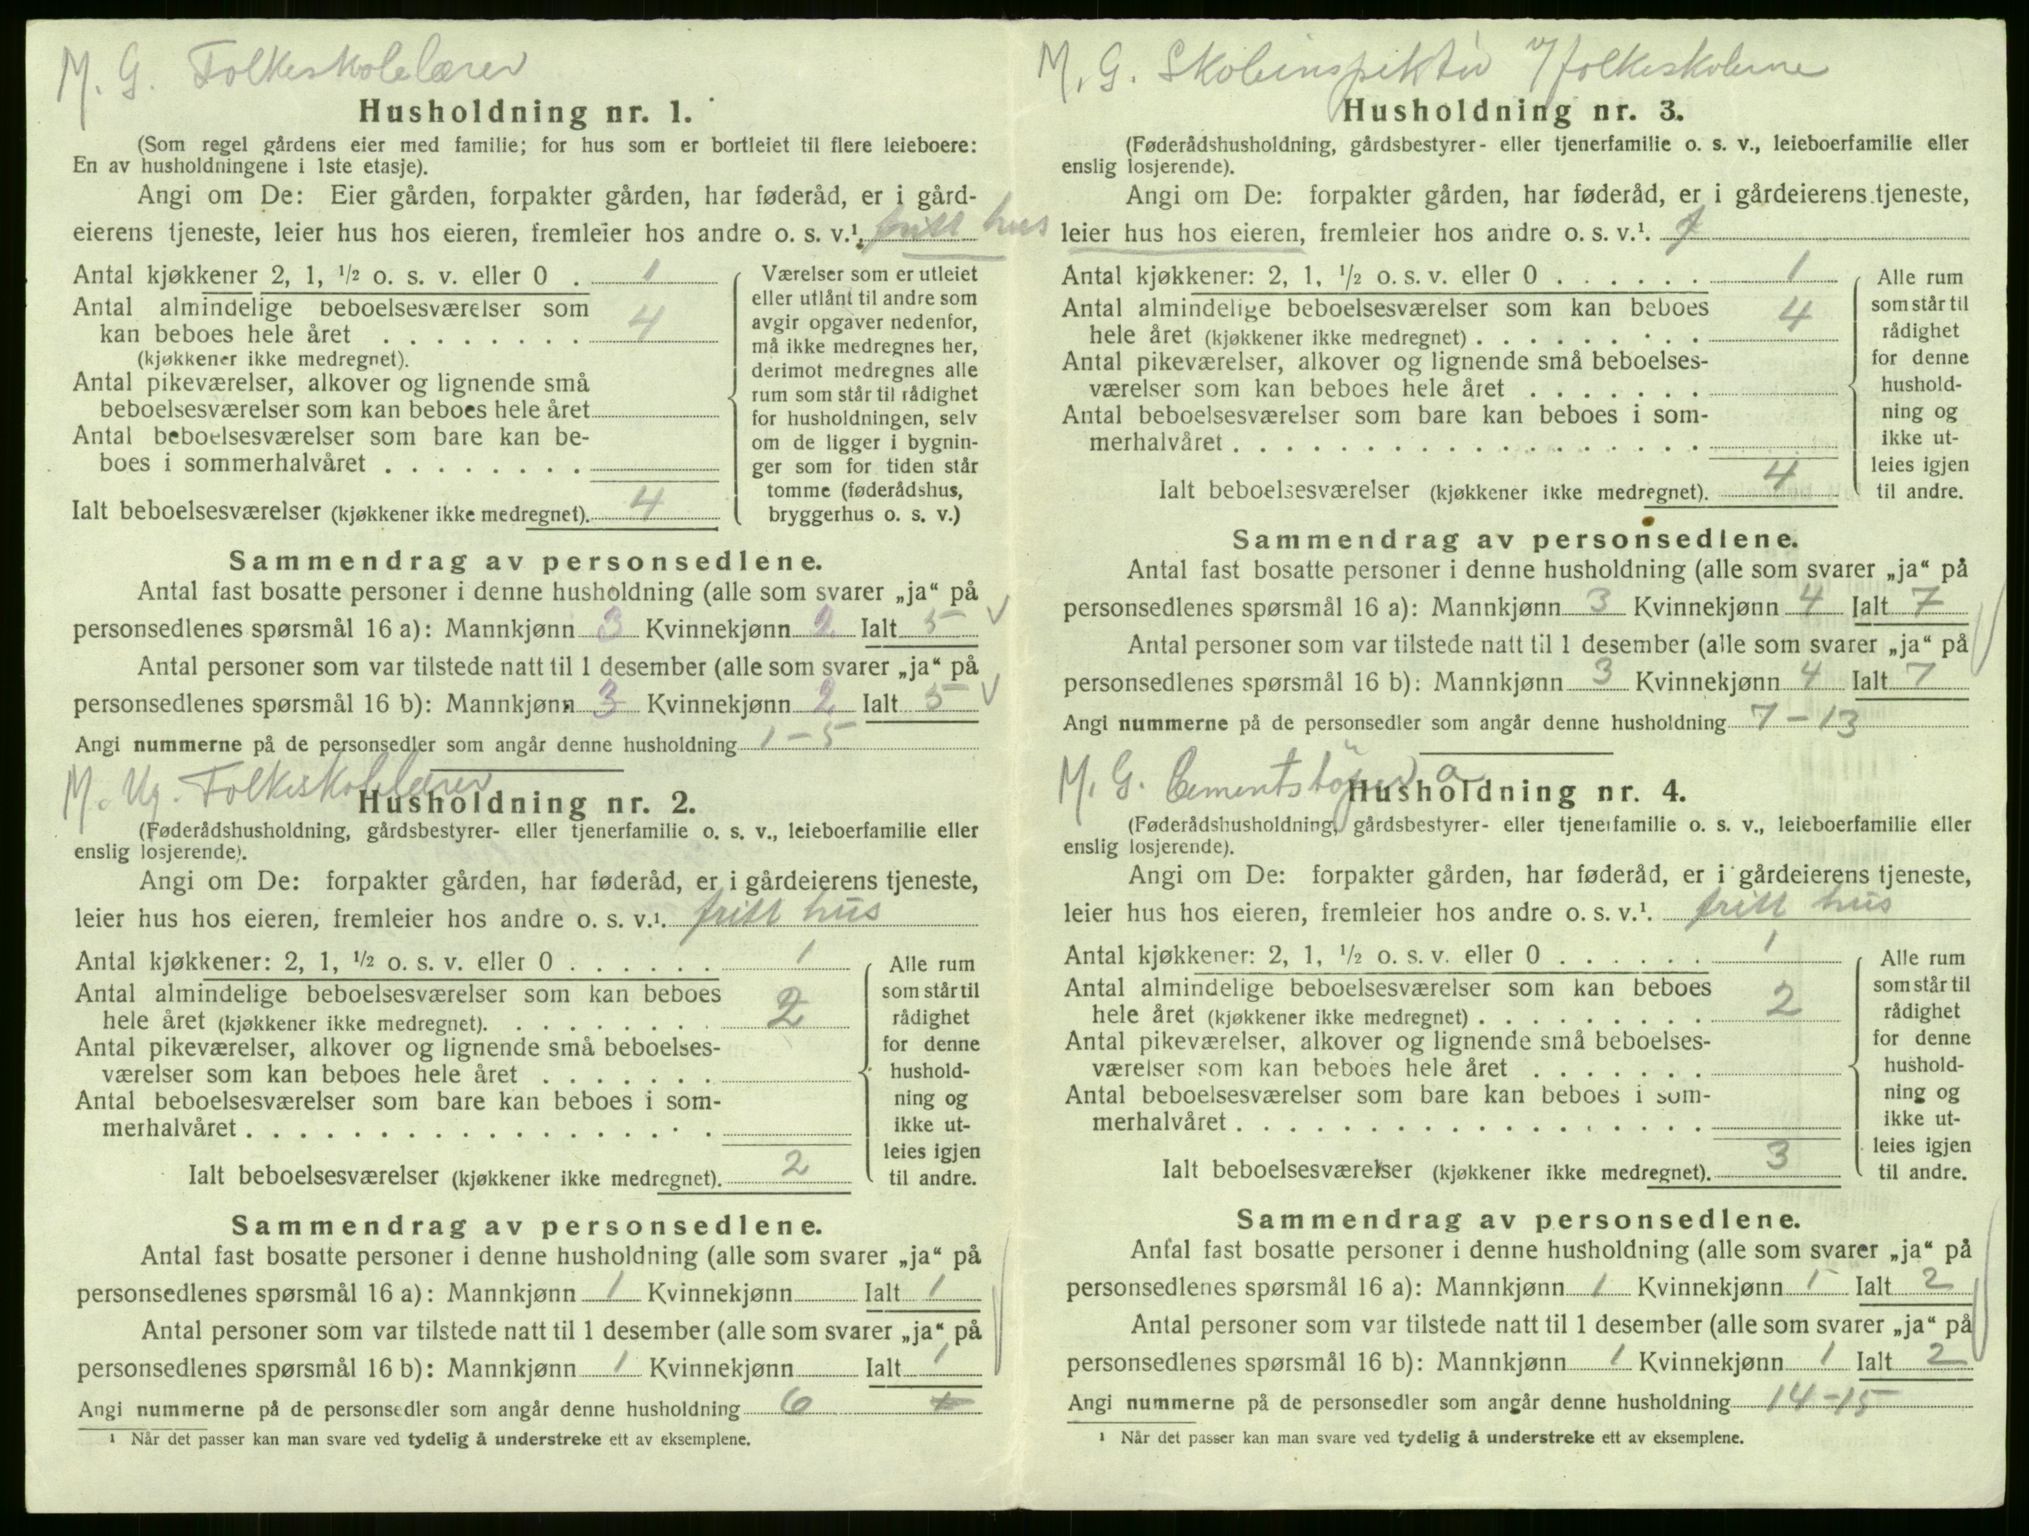 M. G. Folkeskolelærer
Husholdning nr. 1.
(Som regel gårdens eier med familie; for hus som er bortleiet til flere leieboere:
En av husholdningene i 1ste etasje).
Angi om De: Eier gården, forpakter gården, har føderåd, er i gård-
eierens tjeneste, leier hus hos eieren, fremleier hos andre o. s. v.¹. fritt hus
Antal kjøkkener 2, 1, ½ o. s. v. eller 0 . 1
Antal almindelige beboelsesværelser som
kan beboes hele året . . . . . . . . 4
(kjøkkener ikke medregnet).
Antal pikeværelser, alkover og lignende små
beboelsesværelser som kan beboes hele året
Antal beboelsesværelser som bare kan be-
boes i sommerhalvåret . . . . . . . .
Ialt beboelsesværelser (kjøkkener ikke medregnet). 4
Værelser som er utleiet
eller utlånt til andre som
avgir opgaver nedenfor,
må ikke medregnes her,
derimot medregnes alle
rum som står til rådighet
for husholdningen, selv
om de ligger i bygnin-
ger som for tiden står
tomme (føderådshus,
bryggerhus o. s. v.)
Sammendrag av personsedlene.
Antal fast bosatte personer i denne husholdning (alle som svarer „ja“ på
personsedlenes spørsmål 16 a): Mannkjønn 3 Kvinnekjønn 2 Ialt 5 √
Antal personer som var tilstede natt til 1 desember (alle som svarer „ja“ på
personsedlenes spørsmål 16 b): Mannkjønn 3 Kvinnekjønn 2 Ialt 5 √
Angi nummerne på de personsedler som angår denne husholdning 1-5
M. Ug. Folkeskolelærer
Husholdning nr. 2.
(Føderådshusholdning, gårdsbestyrer- eller tjenerfamilie o. s. v., leieboerfamilie eller
enslig losjerende).
Angi om De: forpakter gården, har føderåd, er i gårdeierens tjeneste,
leier hus hos eieren, fremleier hos andre o. s. v.¹. fritt hus
Antal kjøkkener: 2, 1, ½ o. s. v. eller 0 . . . . . . 1
Antal almindelige beboelsesværelser som kan beboes
hele året (kjøkkener ikke medregnet). . . . . . . . . 2
Antal pikeværelser, alkover og lignende små beboelses-
værelser som kan beboes hele året . . . . . . .
Antal beboelsesværelser som bare kan beboes i som-
merhalvåret . . . . . . . . . . . . . . . . .
Ialt beboelsesværelser (kjøkkener ikke medregnet). 2
Alle rum
som står til
rådighet
for denne
hushold-
ning og
ikke ut-
leies igjen
til andre.
Sammendrag av personsedlene.
Antal fast bosatte personer i denne husholdning (alle som svarer „ja“ på
personsedlenes spørsmål 16 a): Mannkjønn 1 Kvinnekjønn Ialt 1
Antal personer som var tilstede natt til 1 desember (alle som svarer „ja“ på
personsedlenes spørsmål 16 b): Mannkjønn 1 Kvinnekjønn Ialt 1
Angi nummerne på de personsedler som angår denne husholdning 6
¹ Når det passer kan man svare ved tydelig å understreke ett av eksemplene.
M. G. Skoleinspektör v/folkeskolerne
Husholdning nr. 3.
(Føderådshusholdning, gårdsbestyrer- eller tjenerfamilie o. s. v., leieboerfamilie eller
enslig losjerende).
Angi om De: forpakter gården, har føderåd, er i gårdeierens tjeneste,
leier hus hos eieren, fremleier hos andre o. s. v.¹.
Antal kjøkkener: 2, 1, ½ o. s. v. eller 0 . . . . . . 1
Antal almindelige beboelsesværelser som kan beboes
hele året (kjøkkener ikke medregnet) . . . . . . . . . 4
Antal pikeværelser, alkover og lignende små beboelses-
værelser som kan beboes hele året . . . . . . .
Antal beboelsesværelser som bare kan beboes i som-
merhalvåret . . . . . . . . . . . . . . . . .
Ialt beboelsesværelser (kjøkkener ikke medregnet). 4
Alle rum
som står til
rådighet
for denne
hushold-
ning og
ikke ut-
leies igjen
til andre.
Sammendrag av personsedlene.
Antal fast bosatte personer i denne husholdning (alle som svarer „ja“ på
personsedlenes spørsmål 16 a): Mannkjønn 3 Kvinnekjønn 4 Ialt 7
Antal personer som var tilstede natt til 1 desember (alle som svarer „ja“ på
personsedlenes spørsmål 16 b): Mannkjønn 3 Kvinnekjønn 4 Ialt 7
Angi nummerne på de personsedler som angår denne husholdning 7-13
M. G. Cementstöper a
Husholdning nr. 4.
(Føderådshusholdning, gårdsbestyrer- eller tjenerfamilie o. s. v., leieboerfamilie eller
enslig losjerende).
Angi om De: forpakter gården, har føderåd, er i gårdeierens tjeneste,
leier hus hos eieren, fremleier hos andre o. s. v.¹. fritt hus
Antal kjøkkener: 2, 1, ½ o. s. v. eller 0 . . . . . . 1
Antal almindelige beboelsesværelser som kan beboes
hele året (kjøkkener ikke medregnet) . . . . . . . . . 2
Antal pikeværelser, alkover og lignende små beboelses-
værelser som kan beboes hele året . . . . . . .
Antal beboelsesværelser som bare kan beboes i som-
merhalvåret . . . . . . . . . . . . . . . . .
Ialt beboelsesværelser (kjøkkener ikke medregnet). 3
Alle rum
som står til
rådighet
for denne
hushold-
ning og
ikke ut-
leies igjen
til andre.
Sammendrag av personsedlene.
Antal fast bosatte personer i denne husholdning (alle som svarer „ja“ på
personsedlenes spørsmål 16 a): Mannkjønn 1 Kvinnekjønn 1 Ialt 2
Antal personer som var tilstede natt til 1 desember (alle som svarer „ja“ på
personsedlenes spørsmål 16 b): Mannkjønn 1 Kvinnekjønn 1 Ialt 2
Angi nummerne på de personsedler som angår denne husholdning 14-15
¹ Når det passer kan man svare ved tydelig å understreke ett av eksemplene.